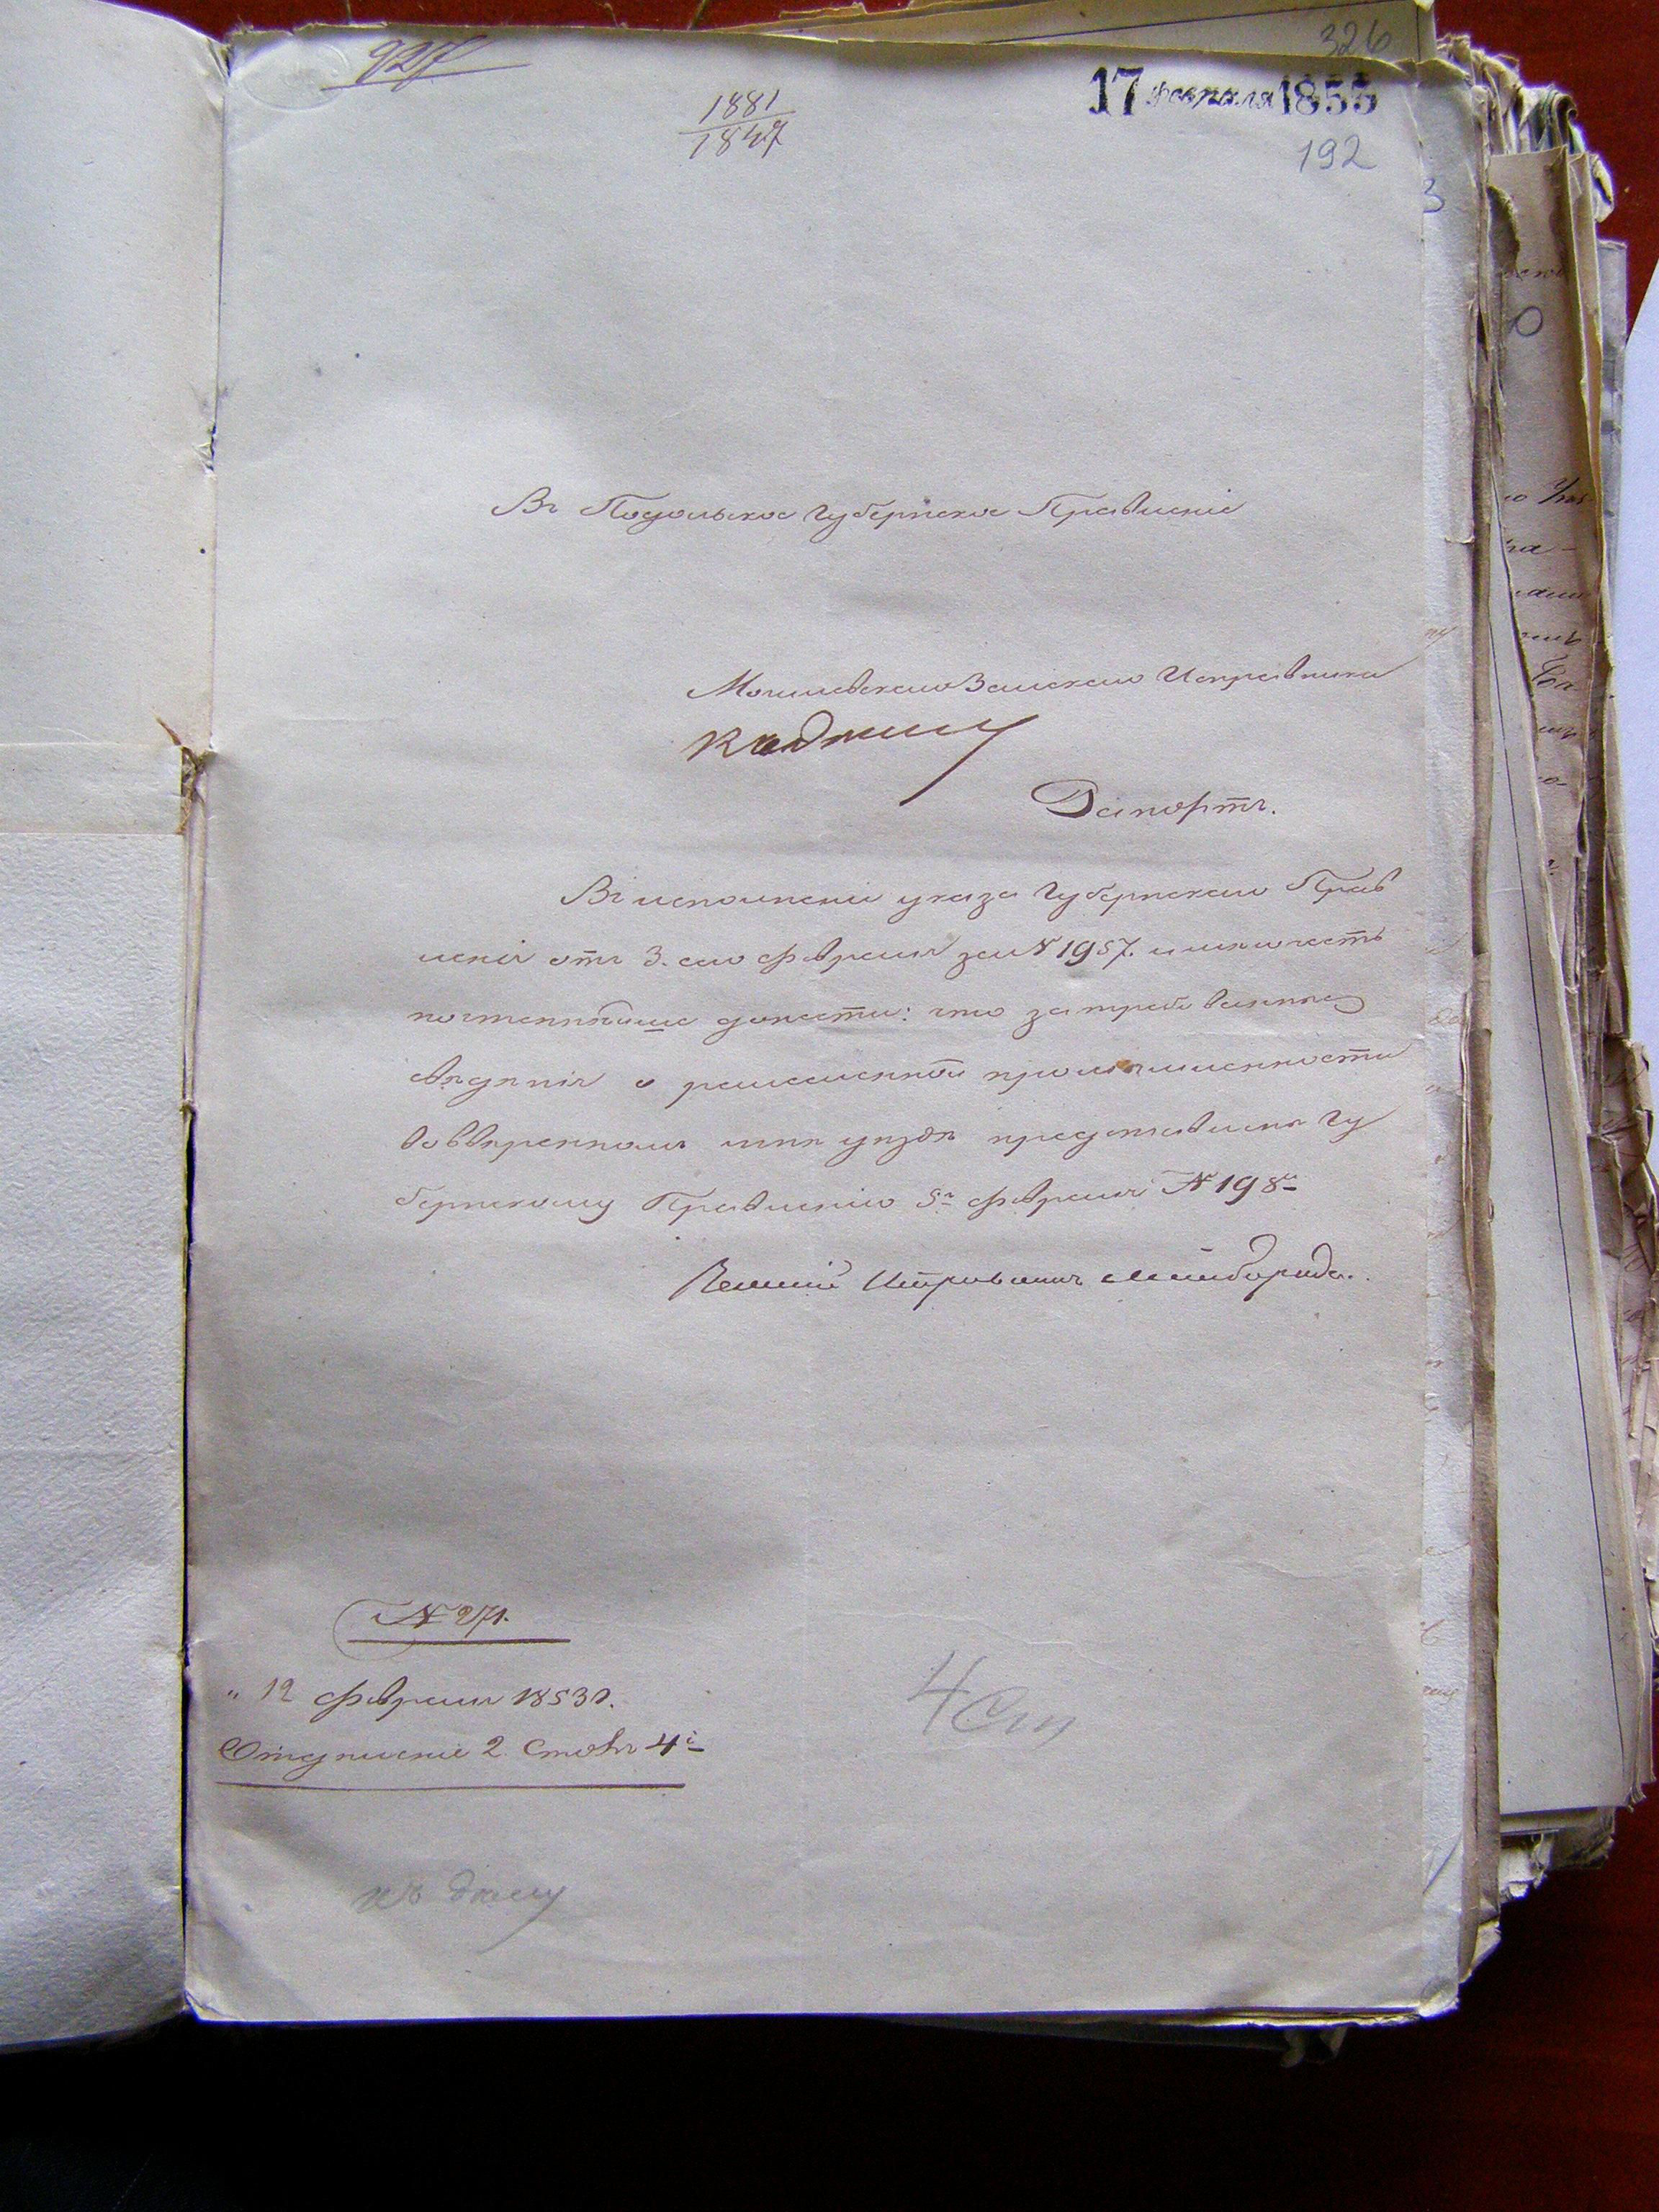 326
927
17 февраля 1855
1881
1847
192
Въ Подольское Губернское Правленіе
Могилевскаго Земскаго Исправника
Рапортъ.
Въ исполненіи указа Губернскаго Прав
ленія отъ 3. сего февраля за № 1957. имѣю честь
почтеннѣйше донести: что затребованныя
свѣдѣнія о ремесленной промышленности
во ввѣренномъ мнѣ уѣздѣ представлены Гу
бернскому Правленію 5го февраля № 198
Земскій Исправникъ
№ 271.
" 12 февраля 1853 г.
Отдѣленіе 2. Столъ 4й
4 Ст
къ дѣлу